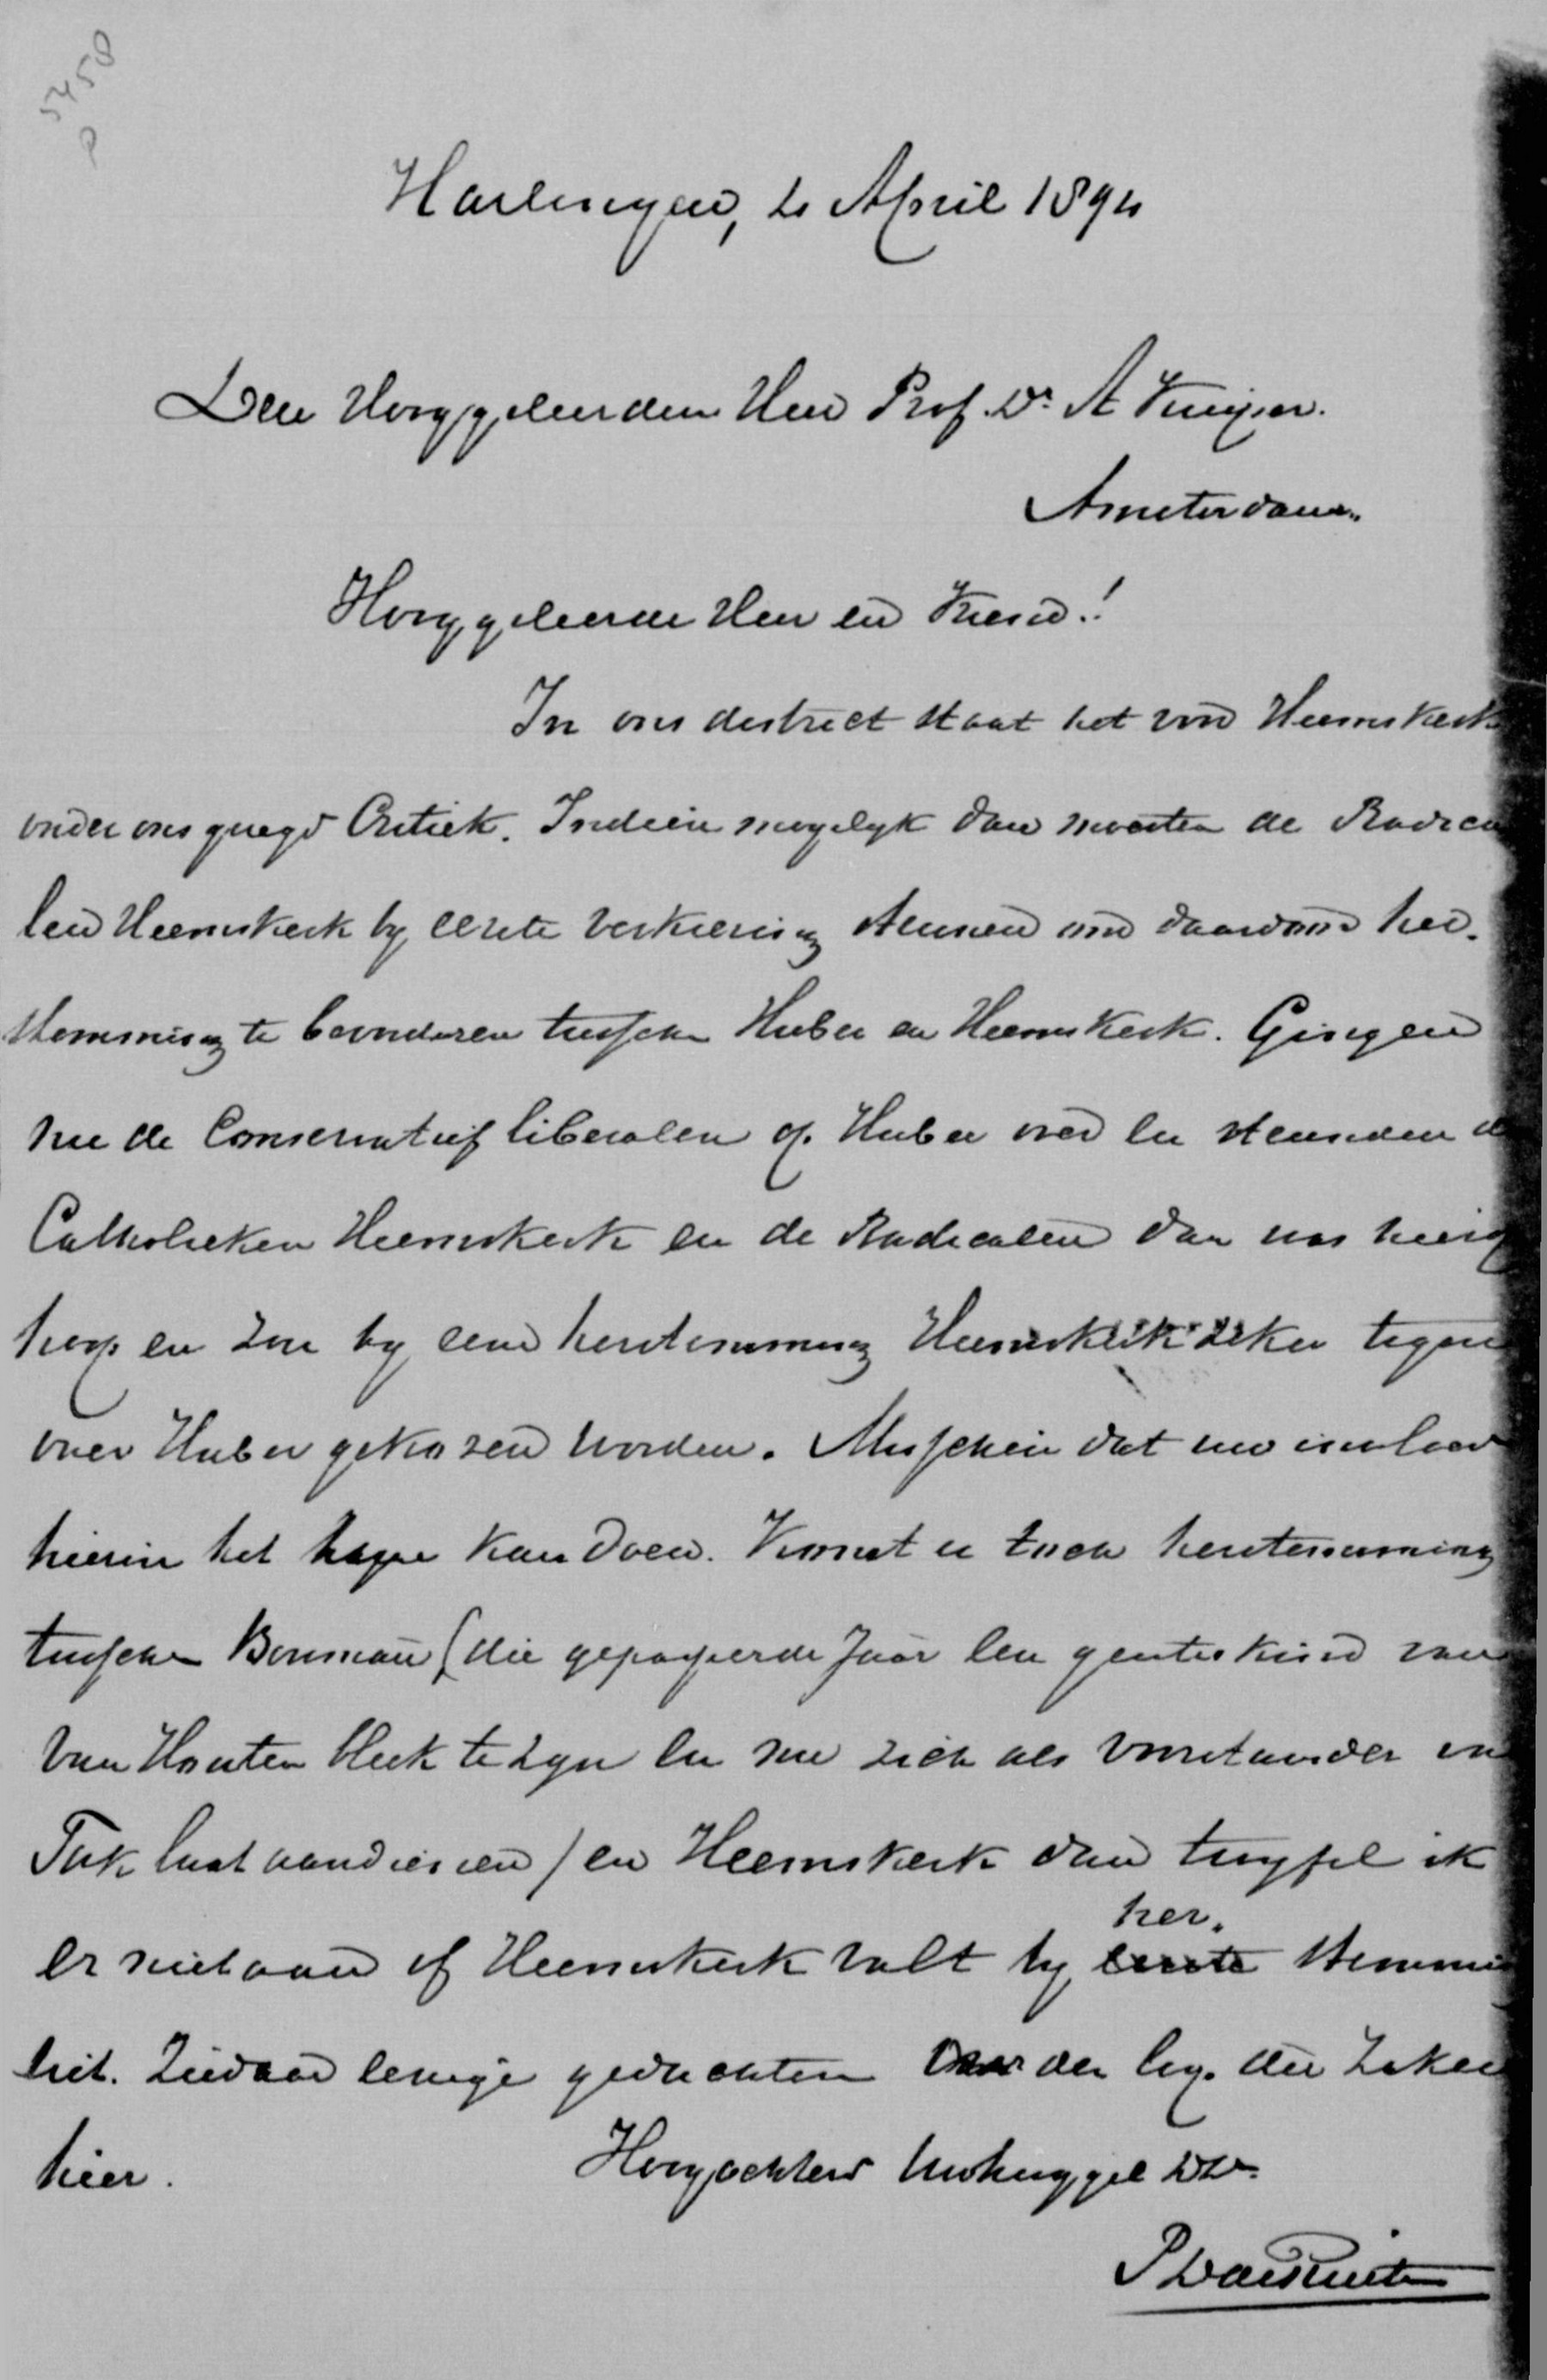 5450
P
Harlingen, 2 April 1894
Den Hooggeleerden Heer Prof. Dr. A Kuijper.
Amsterdam.
Hooggeleerde Heer en Vriend!
In ons district staat het voor Heemskerk
onder ons gezegd Critiek. Indien mogelyk dan moesten de Radica
len Heemskerk by eerste verkiezing steunen om daardoor her.
stemming te bevorderen tusschen Huber en Heemskerk. Gingen
nu de Conservatief liberalen op Huber over en steunden d
Catholieken Heemskerk en de Radicalen dan was hierop
hoop en zou by eene herstemming Heemskerk zeker tegen
over Huber gekozen worden. Misschien dat uw invloed
hierin het hare kan doen. Komt er toch herstemming
tusschen Bouman (die gepasseerde Jaar een geesteskind van
Van Houten bleek te zyn en nu zich als voorstander van
Tak laat aandienen) en Heemskerk dan twyfel ik
her.
er niet aan of Heemskerk valt by eerste stemming
uit. Ziedaar eenige gedachten over den leg. der Zaken
hier.
Hoogachtend UwHooggel DW.